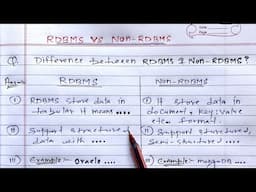 RDBMS VS NON-RDBMS
Q. Difference between RDBMS & Non-RDBMS?
Answer
RDBMS
NON-RDBMS
(I) RDBMS store data in
tabular it means ....
(I) It store data in
document, key:value
etc. format.
(II) Support structured
data with ....
(II) Support structured,
Semi-structured ....
(III) Example:- Oracle ....
(III) Example:- mongoDB ....